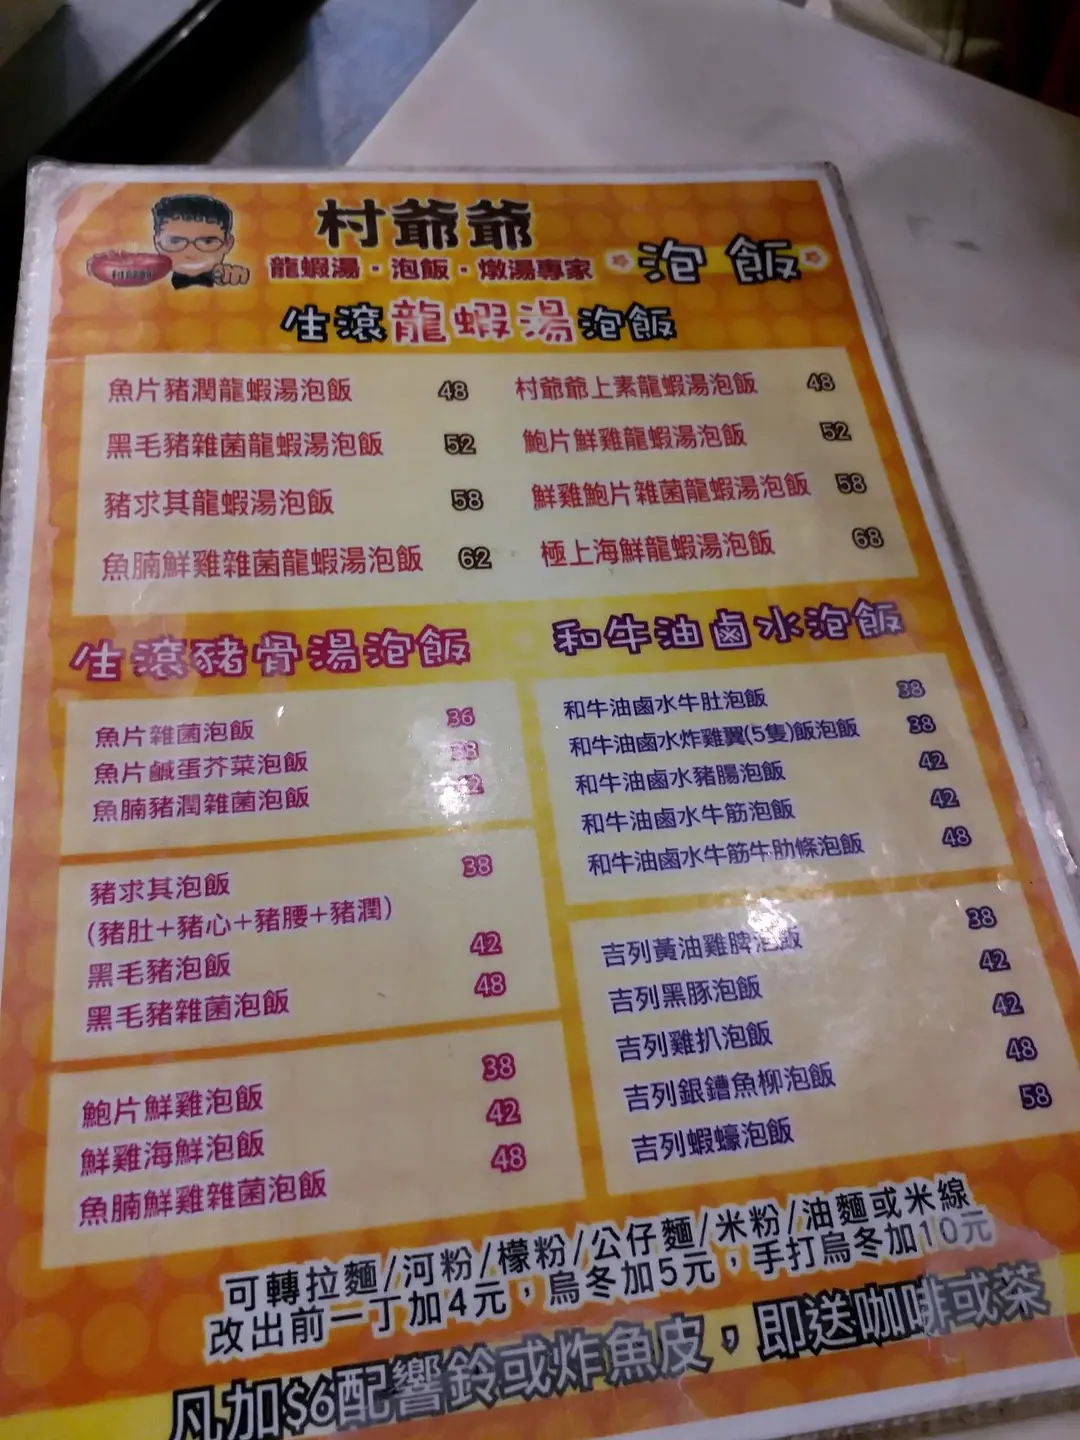 村爺爺
龍蝦湯·泡飯·燉湯專家
泡飯
生滾龍蝦湯泡飯
魚片豬潤龍蝦湯泡飯 48
黑毛豬雜菌龍蝦湯泡飯 52
豬求其龍蝦湯泡飯 58
魚腩鮮雞雜菌龍蝦湯泡飯 62
村爺爺上素龍蝦湯泡飯 48
鮑片鮮雞龍蝦湯泡飯 52
鮮雞鮑片雜菌龍蝦湯泡飯 58
極上海鮮龍蝦湯泡飯 68
生滾豬骨湯泡飯
魚片雜菌泡飯 36
魚片鹹蛋芥菜泡飯 38
魚腩豬潤雜菌泡飯
豬求其泡飯 38
(豬肚+豬心+豬腰+豬潤)
黑毛豬泡飯 42
黑毛豬雜菌泡飯 48
鮑片鮮雞泡飯 38
鮮雞海鮮泡飯 42
魚腩鮮雞雜菌泡飯 48
和牛油鹵水泡飯
和牛油鹵水牛肚泡飯 38
和牛油鹵水炸雞翼(5隻)飯泡飯 38
和牛油鹵水豬腸泡飯 42
和牛油鹵水牛筋泡飯 42
和牛油鹵水牛筋牛肋條泡飯 48
吉列黃油雞脾泡飯 38
吉列黑豚泡飯 42
吉列雞扒泡飯 42
吉列銀鱈魚柳泡飯 48
吉列蝦蠔泡飯 58
可轉拉麵/河粉/檬粉/公仔麵/米粉/油麵或米線
改出前一丁加4元，烏冬加5元，手打烏冬加10元
凡加$6配響鈴或炸魚皮，即送咖啡或茶